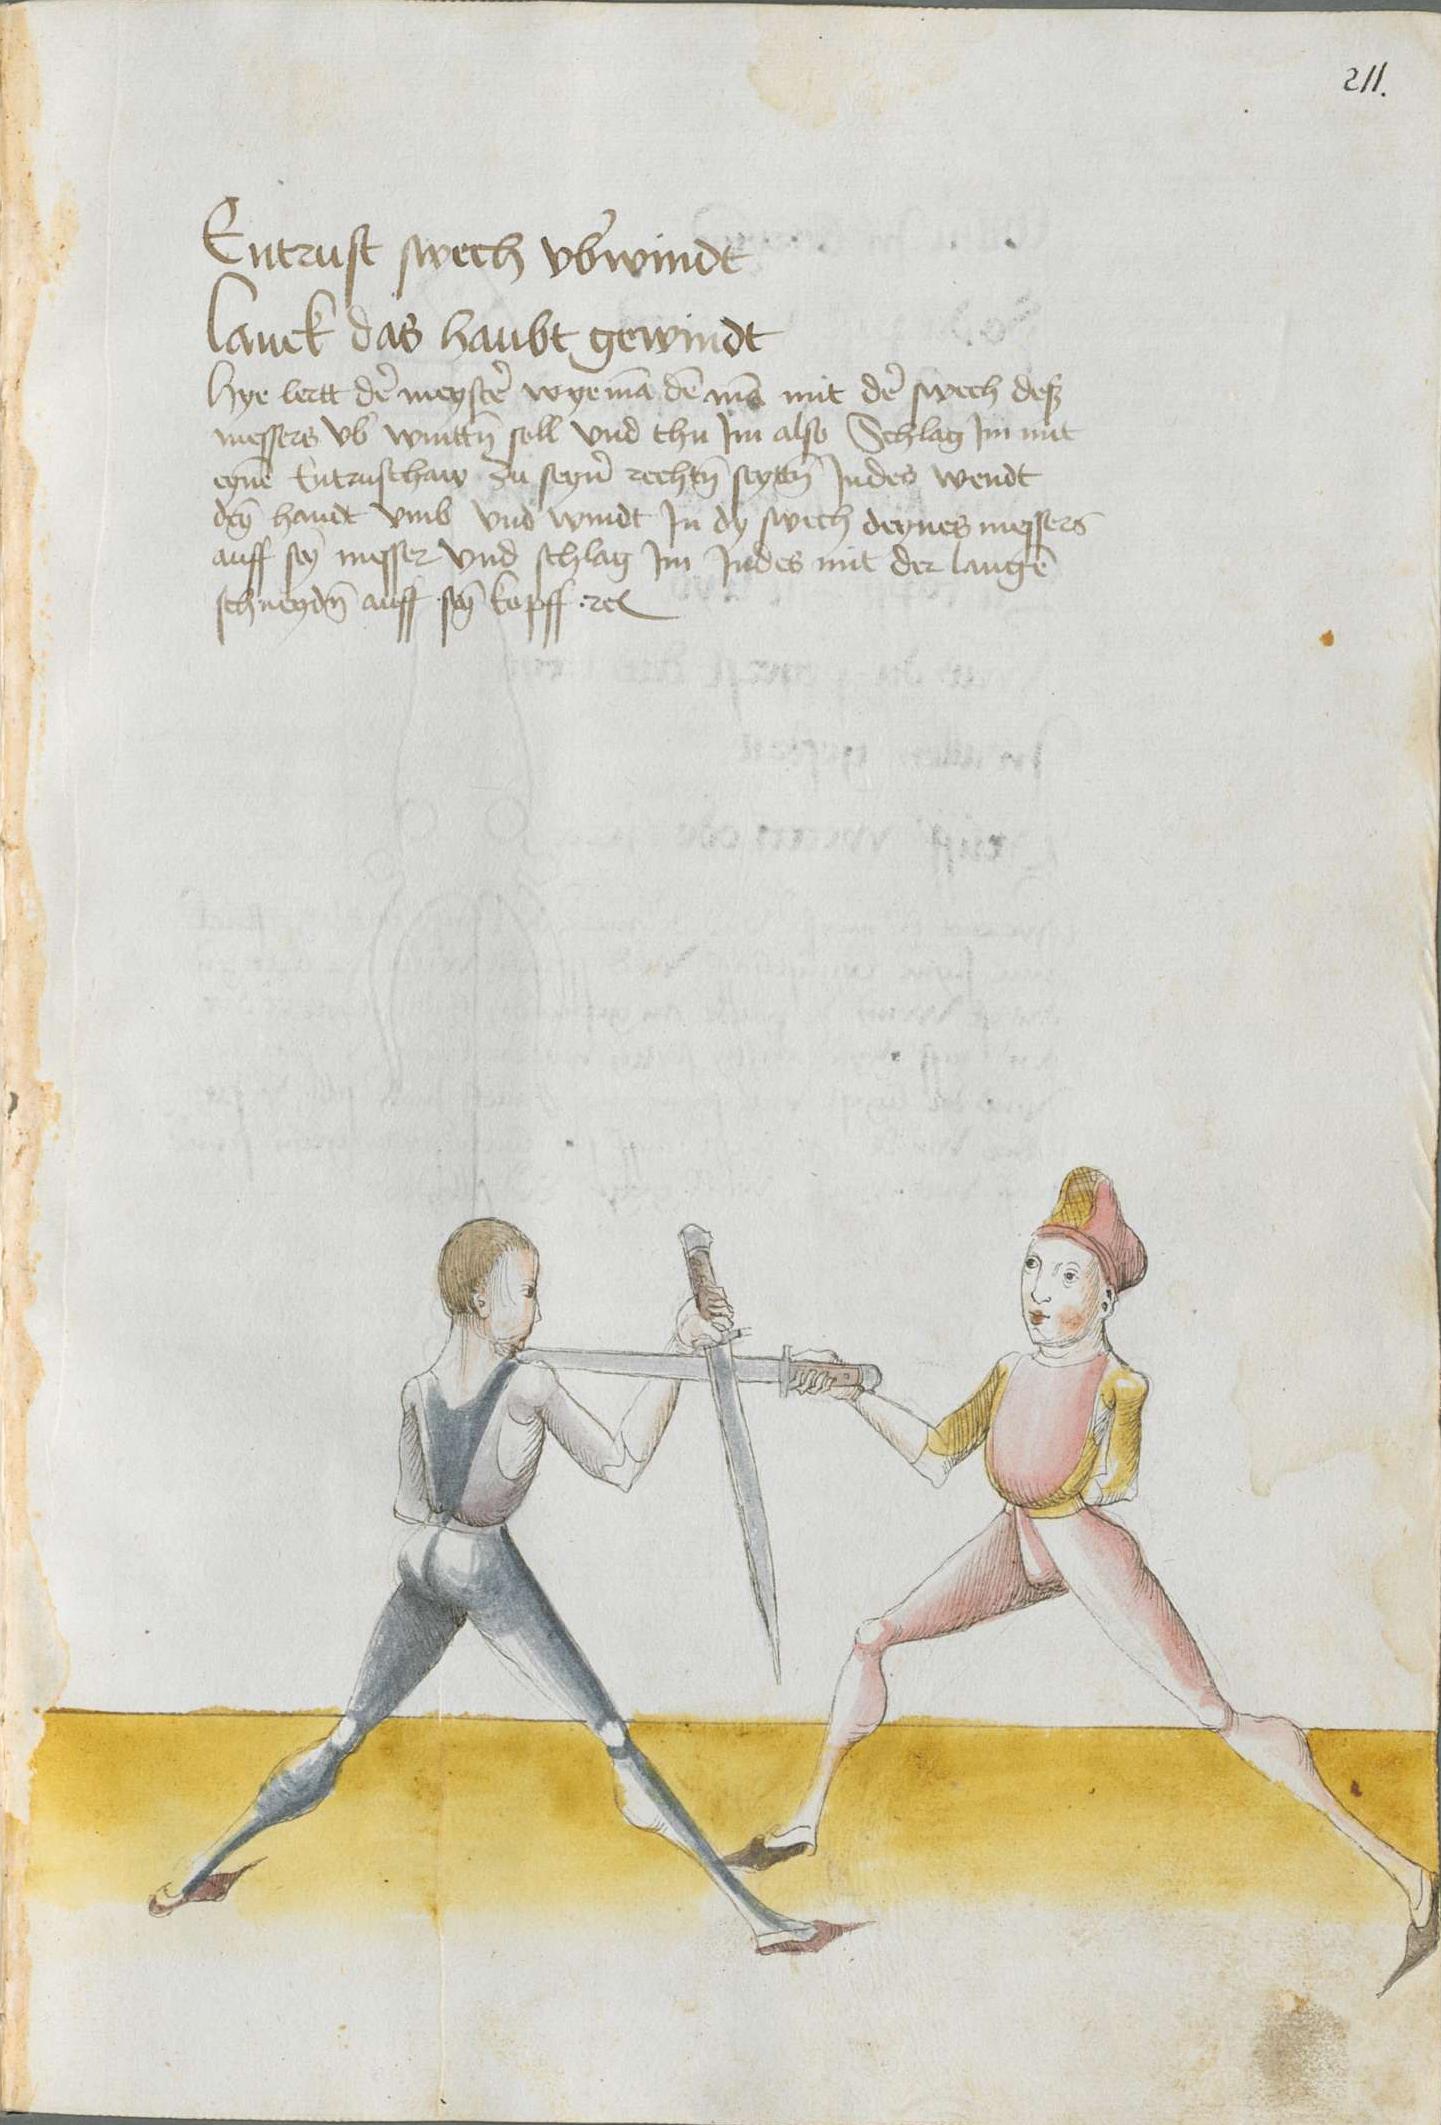 211.
Entrust swech vb̉windt
lanck das haubt gewindt
Hye lertt der̉ meyster̉ wye mā dē mā mit der̉ swech deß
messers vb̉ winttn̄ soll vnd thu Im also Schlag Im mit
eynē Entrusthaw zu seyn̉ rechtn̄ seyttn̄ Indes wendt
deȳ handt vmb vnd windt In dy swech deynes messers
auff seȳ messer vnd schlag Im Indes mit der langē
schneydn̄ auff seȳ kopff ·rc